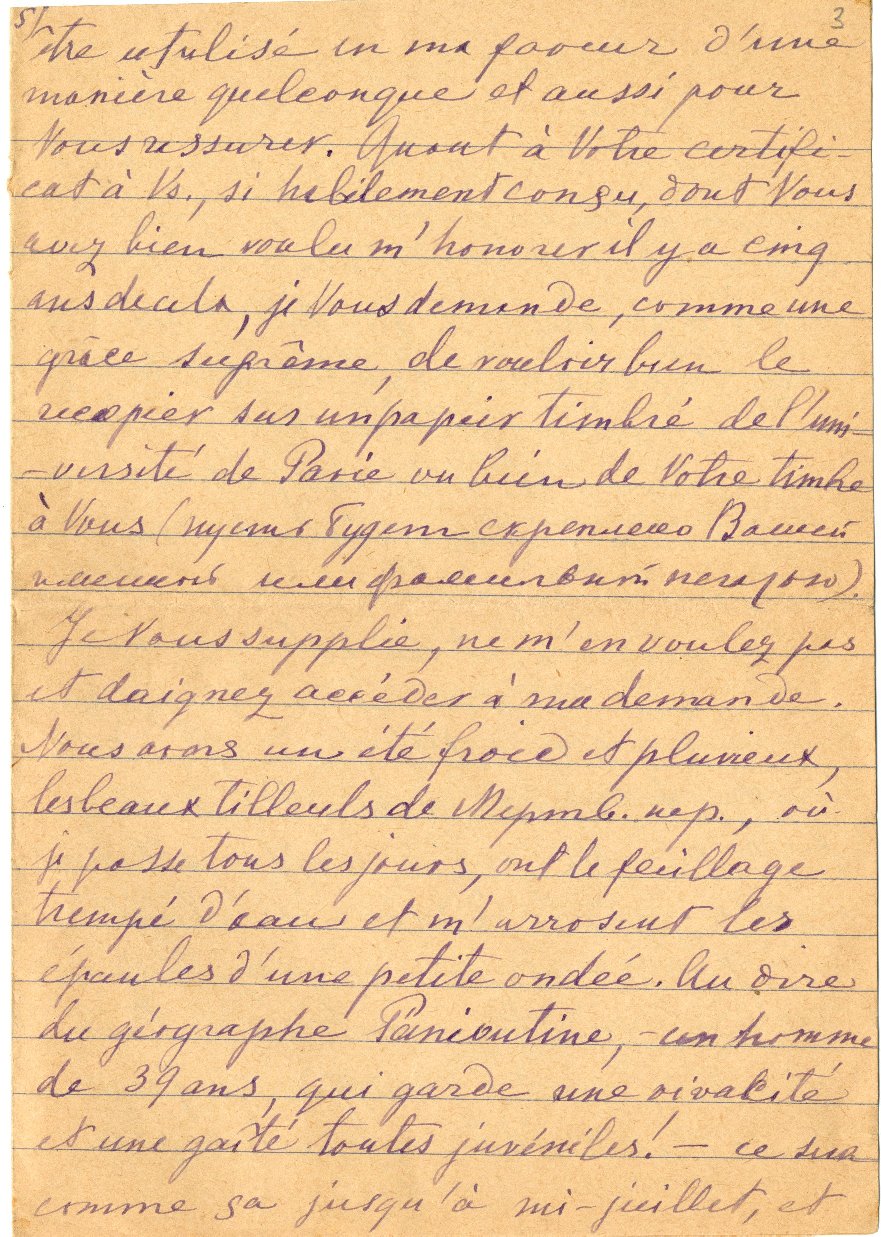 5/ 3
être utilisé en ma faveur d'une
manière quelconque et aussi pour
Vous assurer. Quant à Votre certifi-
cat à Vs., si habilement conçu, dont Vous
avez bien voulu m'honorer il y a cinq
ans de cela, je Vous demande, comme une
grâce suprême, de vouloir bien le
recopier sur un papier timbré de l'uni-
-versité de Paris ou bien de Votre timbre
à Vous (пусть будет скреплено Вашей
именной или фамильной печатью).
Je Vous supplie, ne m'en voulez pas
et daignez accéder à ma demande.
Nous avons un été froid et pluvieux,
les beaux tilleuls de пер., où
je passe tous les jours, ont le feuillage
trempé d'eau et m'arrosent les
épaules d'une petite ondée. Au dire
du géographe Panioutine, – un homme
de 39 ans, qui garde une vivacité
et une gaîté toutes juvéniles! – ce sera
comme ça jusqu'à mi-juillet, et